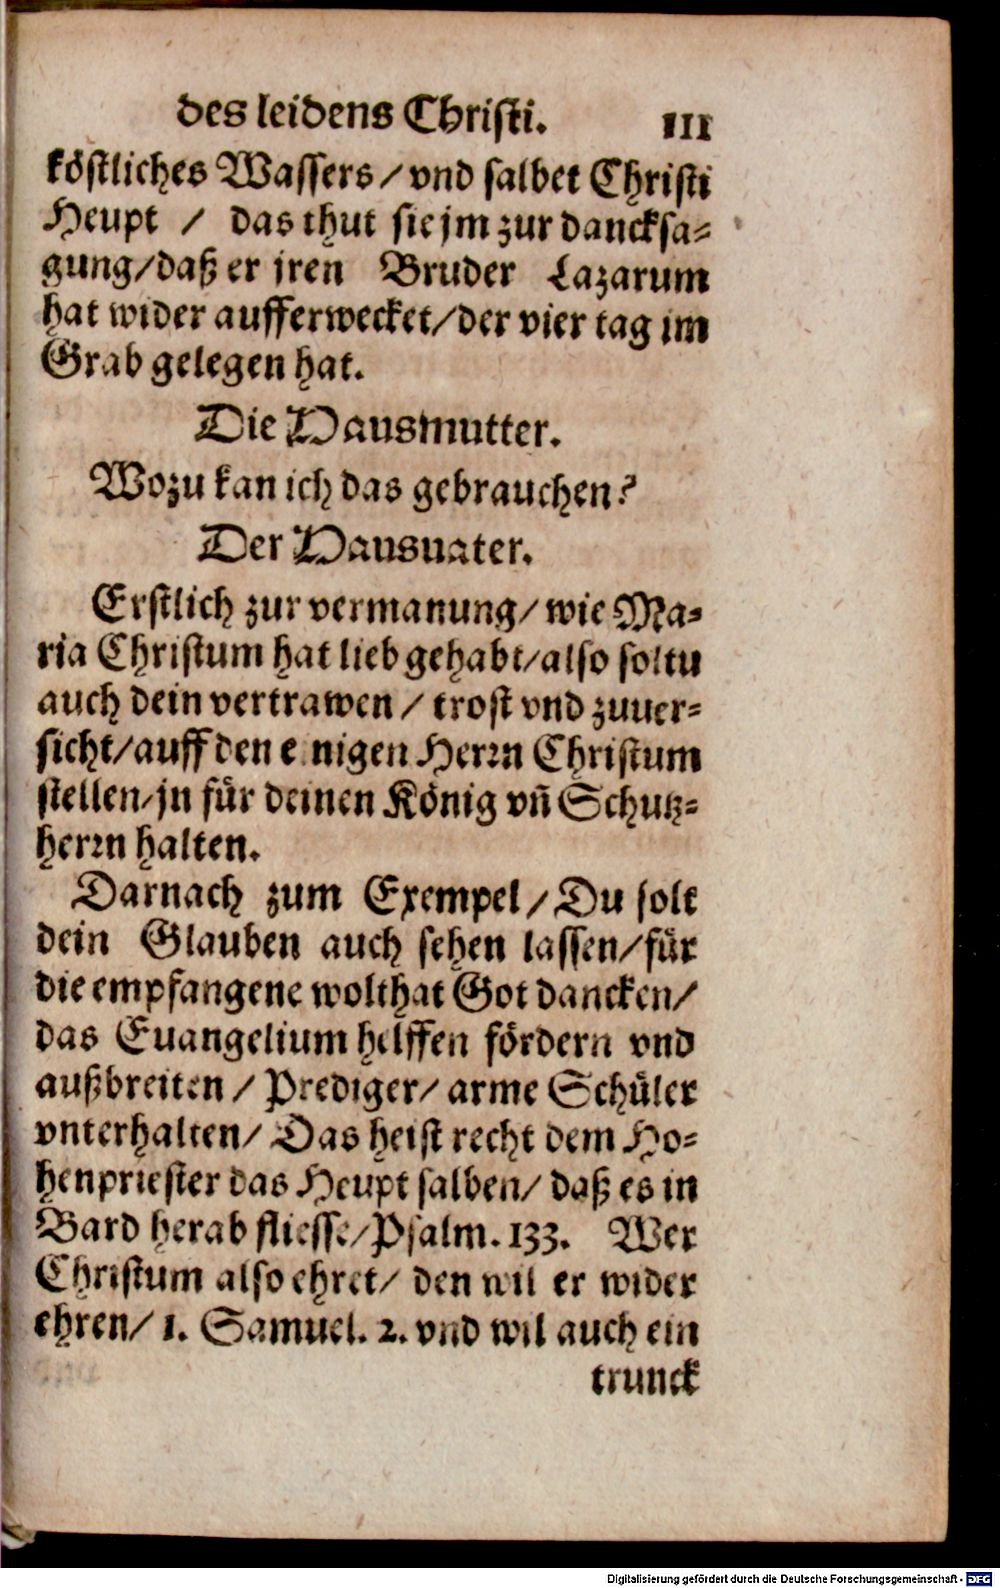 des leidens Christi. 111
köstliches Wassers/vnd salbet Christi
Heupt / das thut sie jm zur dancksa⸗
gung/daß er jren Bruder Lazarum
hat wider aufferwecket/der vier tag im
Grab gelegen hat.
Die Hausmutter.
Wozu kan ich das gebrauchen?
Der Hausuater.
Erstlich zur vermanung/ wie Ma⸗
ria Christum hat lieb gehabt/also soltu
auch dein vertrawen / trost vnd zuuer⸗
sicht/auff den e nigen Herrn Christum
stellen/jn für deinen König vñ Schutz⸗
herrn halten.
Darnach zum Exempel/Du solt
dein Glauben auch sehen lassen/für
die empfangene wolthat Got dancken/
das Euangelium helffen fördern vnd
außbreiten / Prediger/ arme Schüler
vnterhalten/ Das heist recht dem Ho⸗
henpriester das Heupt salben/ daß es in
Bard herab fliesse/Psalm. 133. Wer
Christum also ehret/ den wil er wider
ehren/ 1. Samuel. 2. vnd wil auch ein
trunck
Digitalisierung gefördert durch die Deutsche Forschungsgemeinschaft - DFG